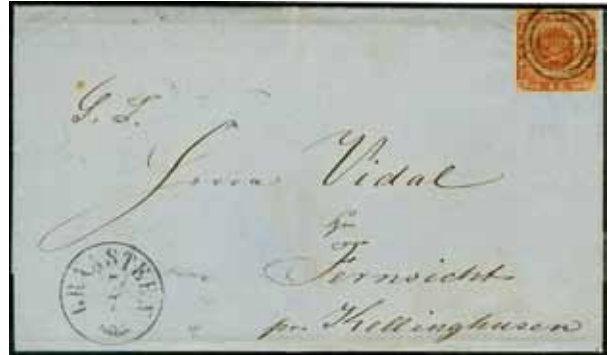 S. T.
Herrn Vidal
zu
Fernsicht
pr. Kellinghusen
GRAASTEEN